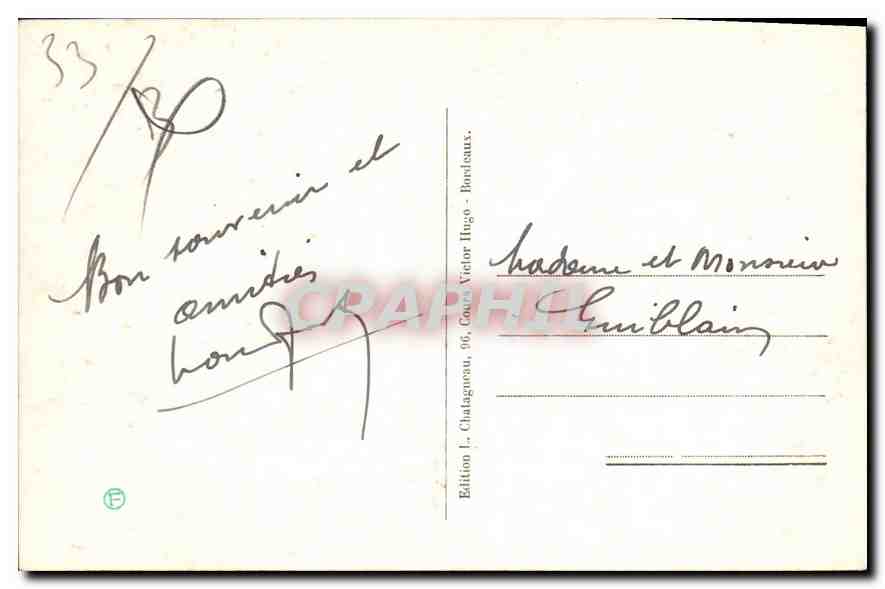 33
Bon souvenir et
amitiés
Edition L. Chatagneau, 96, Cours Victor Hugo - Bordeaux.
Madame et Monsieur
Guiblain
CPAPHIL
F